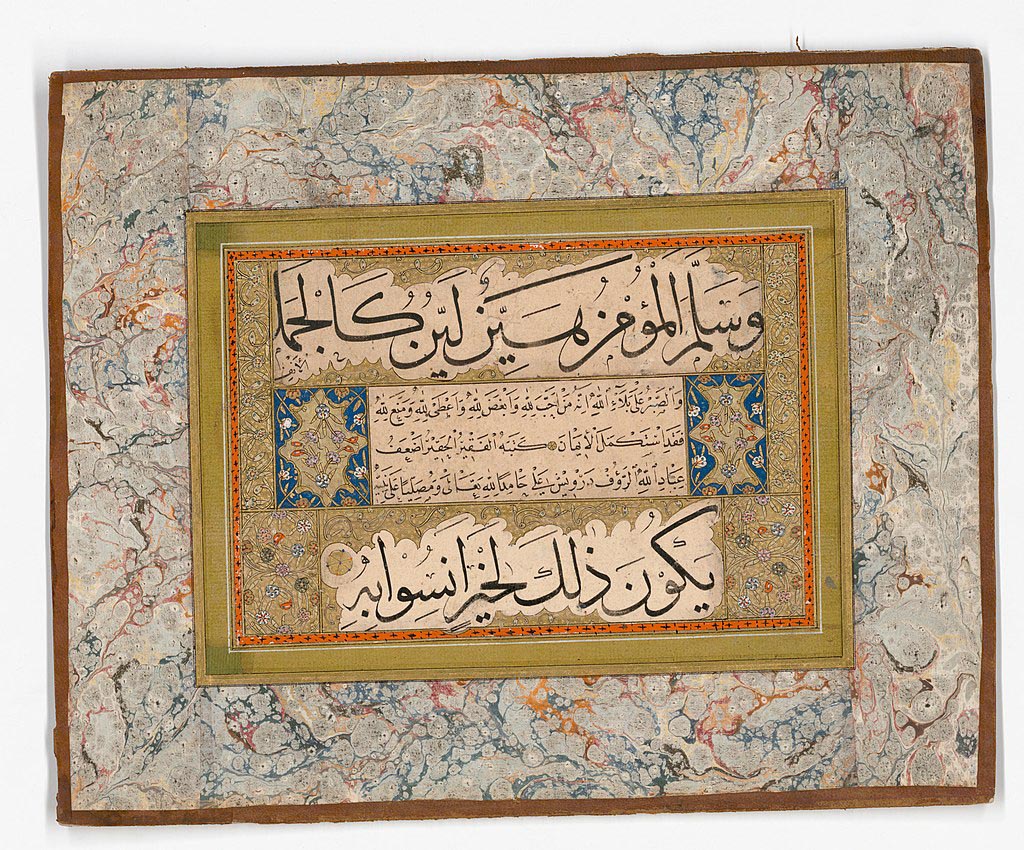 وَسَلَّمَ الْمُؤْمِنُ هَيِّنٌ لَيِّنٌ كَالْجَمَلِ
الأنف
وَالصَّبْرُ عَلَى بَلَاءِ اللهِ اِنَّهُ مَنْ اَحَبَّ لِلهِ وَاَبْغَضَ لِلهِ وَاَعْطَى لِلهِ وَمَنَعَ لِلهِ
فَقَدِ اسْتَكْمَلَ الْاِيمَانَ كَتَبَهُ الْفَقِيرُ الْحَقِيرُ اَضْعَفُ
عِبَادِ اللهِ الرَّؤُفِ دَرْوِيش عَلِي حَامِدًا لِلهِ تَعَالَى وَمُصَلِّيًا عَلَى نَبِيِّهِ
يَكُونُ ذَلِكَ لِخَيْرٍ اَنْسَوَابِهِ